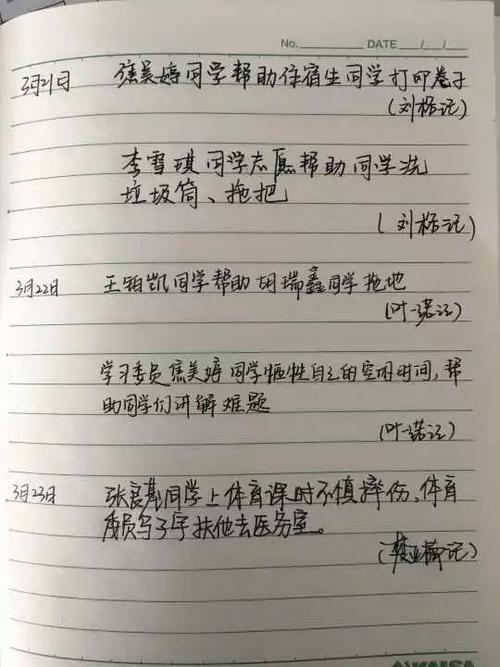 No. DATE / /
3月21日 焦美婷同学帮助住宿生同学打印卷子
(刘格记)
李雪琪同学志愿帮助同学洗
垃圾筒、拖把
(刘格记)
3月22日 王铂凯同学帮助胡瑞鑫同学拖地
(叶诺记)
学习委员焦美婷同学牺牲自己的空闲时间,帮
助同学们讲解难题
(叶诺记)
3月23日 张良基同学上体育课时不慎摔伤,体育
委员乌子宇扶他去医务室。
记)